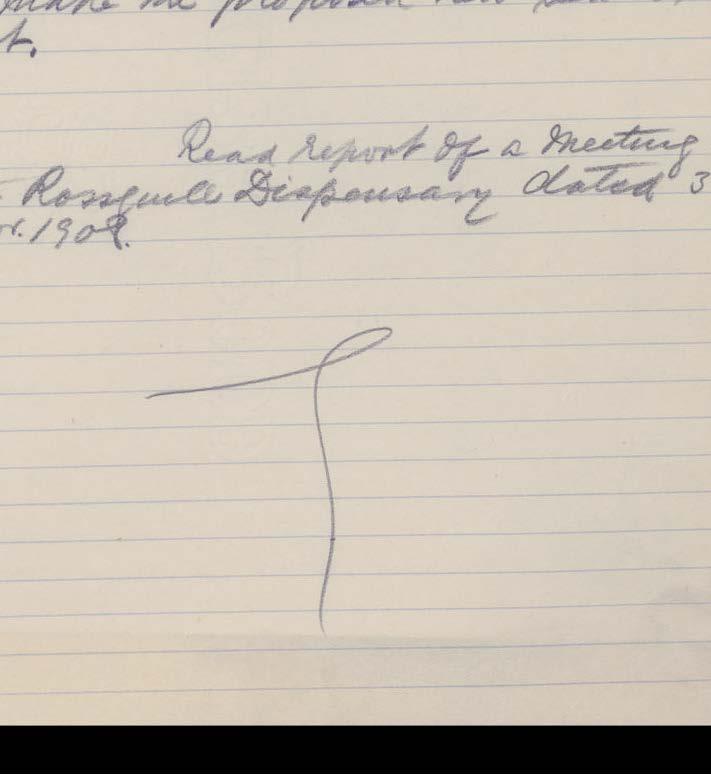 the proposed
t.
Read report of a Meeting
Rossguile Dispensary dated 3
1908.